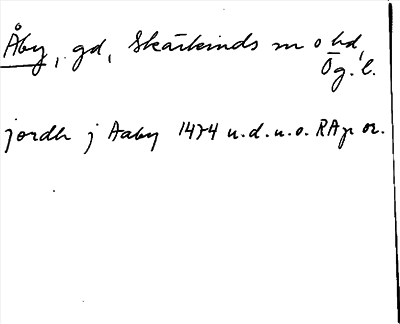 Åby, gd, Skärkinds sn o hd,
Ög. l.
jordh j Aaby 1474 u.d. u.o. RAp or.